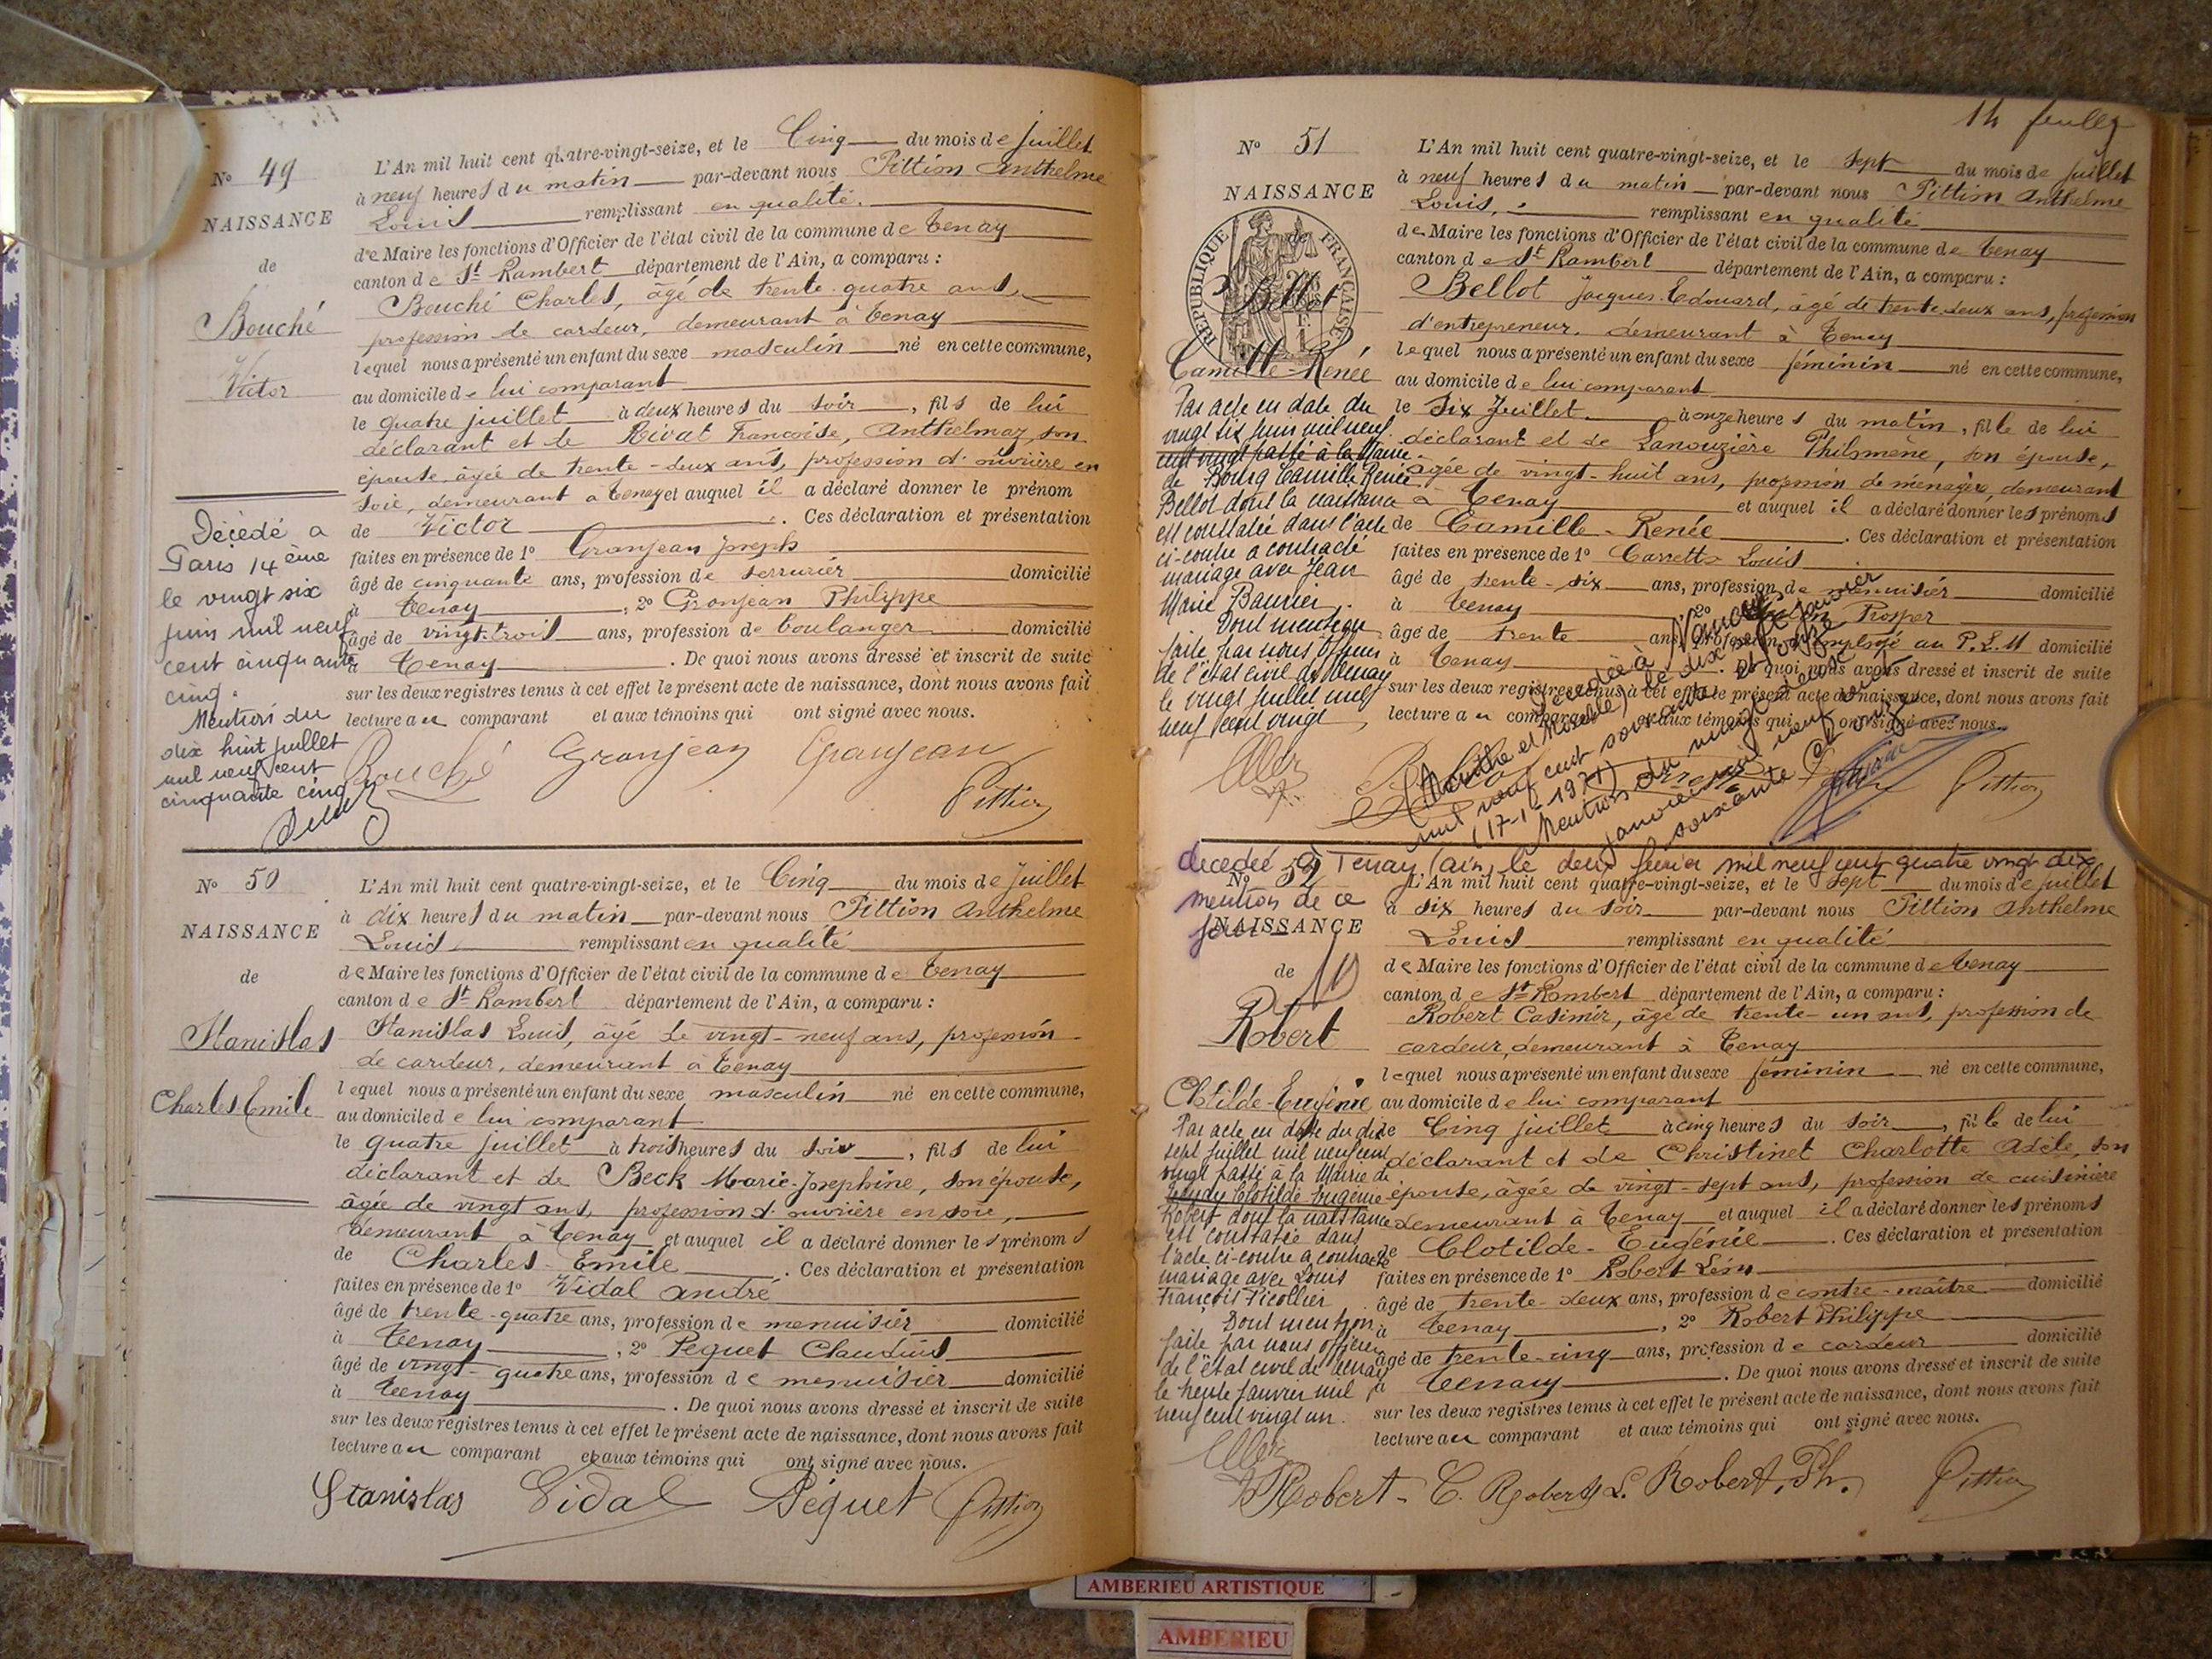 N° 49
NAISSANCE
de
Bouché
Victor
L'An mil huit cent quatre-vingt-seize, et le Cinq du mois de juillet
à neuf heures du matin par-devant nous Pittion Anthelme
Louis remplissant en qualité
de Maire les fonctions d'Officier de l'état civil de la commune de Tenay
canton de St Rambert département de l'Ain, a comparu :
Bouché Charles, âgé de trente-quatre ans,
profession de cardeur, demeurant à Tenay
lequel nous a présenté un enfant du sexe masculin né en cette commune,
au domicile de lui comparant
le quatre juillet à deux heures du soir, fils de lui
déclarant et de Rivat Françoise, Anthelmaz, son
épouse, âgée de trente-deux ans, profession d'ouvrière en
soie, demeurant à Tenay et auquel il a déclaré donner le prénom
de Victor. Ces déclaration et présentation
faites en présence de 1° Granjean Joseph
âgé de cinquante ans, profession de serrurier domicilié
à Tenay, 2° Granjean Philippe
âgé de vingt-trois ans, profession de boulanger domicilié
à Tenay. De quoi nous avons dressé et inscrit de suite
sur les deux registres tenus à cet effet le présent acte de naissance, dont nous avons fait
lecture au comparant et aux témoins qui ont signé avec nous.
Décédé a
Paris 14ème
le vingt six
juin mil neuf
cent cinquante
cinq.
Mention du
dix huit juillet
mil neuf cent
cinquante cinq
Bouché Granjean Granjean
Pittion
N° 50
NAISSANCE
de
Stanislas
Charles Emile
L'An mil huit cent quatre-vingt-seize, et le Cinq du mois de juillet
à dix heures du matin par-devant nous Pittion Anthelme
Louis remplissant en qualité
de Maire les fonctions d'Officier de l'état civil de la commune de Tenay
canton de St Rambert département de l'Ain, a comparu :
Stanislas Louis, âgé de vingt-neuf ans, profession
de cardeur, demeurant à Tenay
lequel nous a présenté un enfant du sexe masculin né en cette commune,
au domicile de lui comparant
le quatre juillet à trois heures du soir, fils de lui
déclarant et de Beck Marie-Joséphine, son épouse,
âgée de vingt ans, profession d'ouvrière en soie,
demeurant à Tenay et auquel il a déclaré donner les prénoms
de Charles-Emile. Ces déclaration et présentation
faites en présence de 1° Vidal André
âgé de trente-quatre ans, profession de menuisier domicilié
à Tenay, 2° Pequet Claudius
âgé de vingt-quatre ans, profession de menuisier domicilié
à Tenay. De quoi nous avons dressé et inscrit de suite
sur les deux registres tenus à cet effet le présent acte de naissance, dont nous avons fait
lecture au comparant et aux témoins qui ont signé avec nous.
Stanislas Vidal Péquet Pittion
14
N° 51
NAISSANCE
de
RÉPUBLIQUE FRANÇAISE
Bellot
Camille-Renée
L'An mil huit cent quatre-vingt-seize, et le sept du mois de juillet
à neuf heures du matin par-devant nous Pittion Anthelme
Louis, remplissant en qualité
de Maire les fonctions d'Officier de l'état civil de la commune de Tenay
canton de St Rambert département de l'Ain, a comparu :
Bellot Jacques-Edouard, âgé de trente-deux ans, profession
d'entrepreneur, demeurant à Tenay
lequel nous a présenté un enfant du sexe féminin né en cette commune,
au domicile de lui comparant
le six juillet à onze heures du matin, fille de lui
déclarant et de Lanouzière Philomène, son épouse,
âgée de vingt-huit ans, profession de ménagère, demeurant
à Tenay et auquel il a déclaré donner les prénoms
de Camille-Renée. Ces déclaration et présentation
faites en présence de 1° Carretto Louis
âgé de trente-six ans, profession de menuisier domicilié
à Tenay 2° Prosper
âgé de trente ans, profession d'employé au P.L.M domicilié
à Tenay. De quoi nous avons dressé et inscrit de suite
sur les deux registres tenus à cet effet le présent acte de naissance, dont nous avons fait
lecture au comparant et aux témoins qui ont signé avec nous.
Par acte en date du
vingt six juin mil neuf
cent vingt passé à la Mairie
de Bourg Camille Renée
Bellot dont la naissance
est constatée dans l'acte
ci-contre a contracté
mariage avec Jean
Marie Bauvier.
Dont mention
faite par nous officier
de l'état civil de Tenay
le vingt juillet mil
neuf cent vingt
Décédée à Nancy
(Meurthe et Moselle) le dix sept janvier
mil neuf cent soixante et onze
(17-1-1971)
Mention du vingt neuf
janvier mil neuf cent
soixante et onze
Pittion
décédée à Tenay (ain) le deux février mil neuf cent quatre vingt dix
mention de ce
jour
N° 52
NAISSANCE
de
Robert
Clotilde-Eugénie
L'An mil huit cent quatre-vingt-seize, et le sept du mois de juillet
à six heures du soir par-devant nous Pittion Anthelme
Louis remplissant en qualité
de Maire les fonctions d'Officier de l'état civil de la commune de Tenay
canton de St Rambert département de l'Ain, a comparu :
Robert Casimir, âgé de trente-un ans, profession de
cardeur, demeurant à Tenay
lequel nous a présenté un enfant du sexe féminin né en cette commune,
au domicile de lui comparant
le Cinq juillet à cinq heures du soir, fille de lui
déclarant et de Christinet Charlotte Adèle, son
épouse, âgée de vingt-sept ans, profession de cuisinière
demeurant à Tenay et auquel il a déclaré donner les prénoms
de Clotilde-Eugénie. Ces déclaration et présentation
faites en présence de 1° Robert Léon
âgé de trente-deux ans, profession de contre-maître domicilié
à Tenay, 2° Robert Philippe
âgé de trente-cinq ans, profession de cardeur domicilié
à Tenay. De quoi nous avons dressé et inscrit de suite
sur les deux registres tenus à cet effet le présent acte de naissance, dont nous avons fait
lecture au comparant et aux témoins qui ont signé avec nous.
Par acte en date du dix
sept juillet mil neuf cent
vingt passé à la Mairie de
Tenay Clotilde Eugénie
Robert dont la naissance
est constatée dans
l'acte ci-contre a contracté
mariage avec Louis
François Picollier
Dont mention
faite par nous officier
de l'état civil de Tenay
le trente janvier mil
neuf cent vingt un.
Robert C. Robert L. Robert Ph. Pittion
AMBERIEU ARTISTIQUE
AMBERIEU